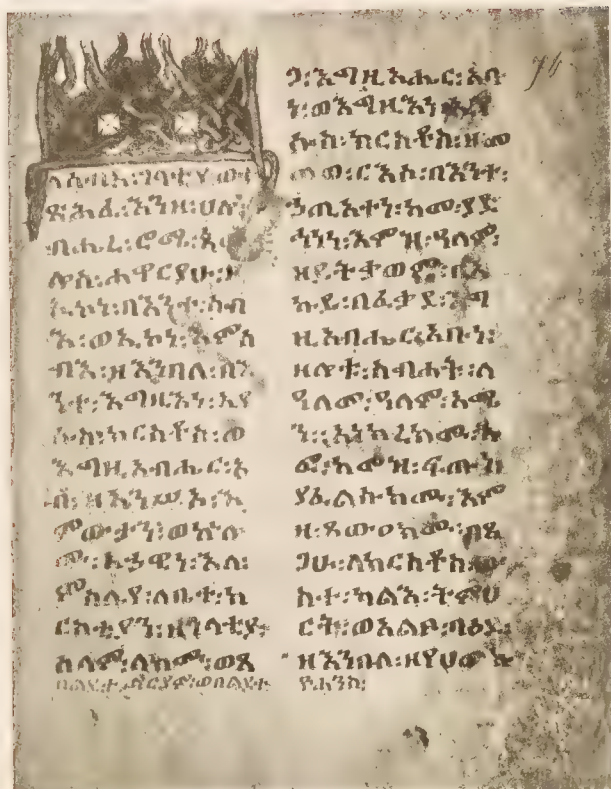 ለሰብአ፡ገላቲያ፡ወተ
ጽሕፈ፡እንዘ፡ሀሎ፡
ብሔረ፡ሮሜ፡ጳው
ሎስ፡ሐዋርያሁ፡ዘ
ኢኮነ፡በእንተ፡ሰብ
እ፡ወኢኮነ፡እምሰ
ብእ፡ዘእንበለ፡በእ
ንተ፡እግዚእነ፡ኢየ
ሱስ፡ክርስቶስ፡ወ
እግዚአብሔር፡አ
ብ፡ዘአንሥኦ፡እ
ምውታን፡ወኵሎ
ሙ፡አኃዊነ፡እለ፡
ምስሌየ፡ለቤተ፡ክ
ርስቲያን፡ዘገላቲያ፡
ሰላም፡ለክሙ፡ወጸ
ጋ፡እግዚአብሔር፡አቡ
ነ፡ወእግዚእነ፡ኢየ
ሱስ፡ክርስቶስ፡ዘመ
ጠወ፡ርእሶ፡በእንተ፡
ኃጢአትነ፡ከመ፡ያድ
ኅነነ፡እምዝ፡ዓለም፡
ዘይትቃወም፡በእ
ኩይ፡በፈቃደ፡እግ
ዚአብሔር፡አቡነ፡
ዘሎቱ፡ስብሐት፡ለ
ዓለመ፡ዓለም፡አሜ
ን።አነክረክሙ፡እ
ፎ፡ከመዝ፡ፍጡነ፡
ያፈልሱክሙ፡እም
ዘ፡ጸውዐክሙ፡በጸ
ጋሁ፡ለክርስቶስ፡ው
ስተ፡ካልእ፡ትምህ
ርት፡ወአልቦ፡ባዕድ፡
ዘእንበለ፡ዘየሀውኩ